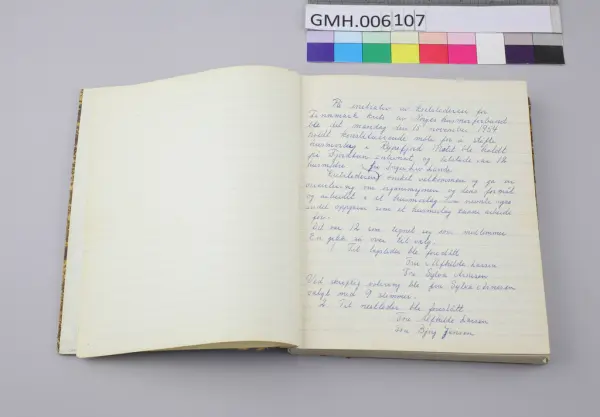 GMH.006107
På initiativ av kretslederen for
Finnmark krets av Norges Husmorforbund
ble det mandag den 15 november 1954
holdt konstituerende møte for å stifte
husmorlag i Repvåg. Møtet ble holdt
på og deltok den 12
husmødre. fru
Kretslederen ønsket velkommen og ga en
orientering om organisasjonen og dens formål
og arbeidet i et husmorlag. Hun nevnte også
endel oppgaver som et husmorlag kunne arbeide
for.
Det var 12 som tegnet seg som medlemmer.
En gikk så over til valg.
1 Til lagsleder ble foreslått
Fru Alfhilde Larsen
Fru Sylvia
Ved skreftlig votering ble fru Sylvia
valgt med 9 stemmer.
2. Til nestleder ble foreslått
Fru Alfhilde Larsen
Fru Bjørg Jensen